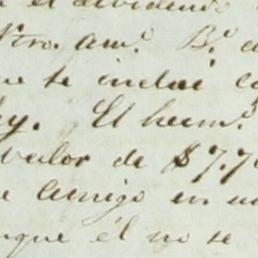 el dividendo
Ntro. am.º B.º d
ue te incluí co
y. El herm.º
valor de $7.70
e amigo en u
nque él no se